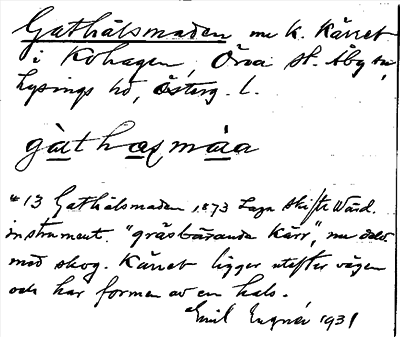 Gathålsmaden nu k. Kärret
i Kohagen, Örsa st. Åby sn,
Lysings hd, Österg. l.
gàthąsmáa
# 13 Gathålsmaden 1873 Laga skifte Värd.
instrument. "gräsbärande kärr", nu delv.
med skog. Kärret ligger utefter vägen
och har formen av en hals.
Emil 1931